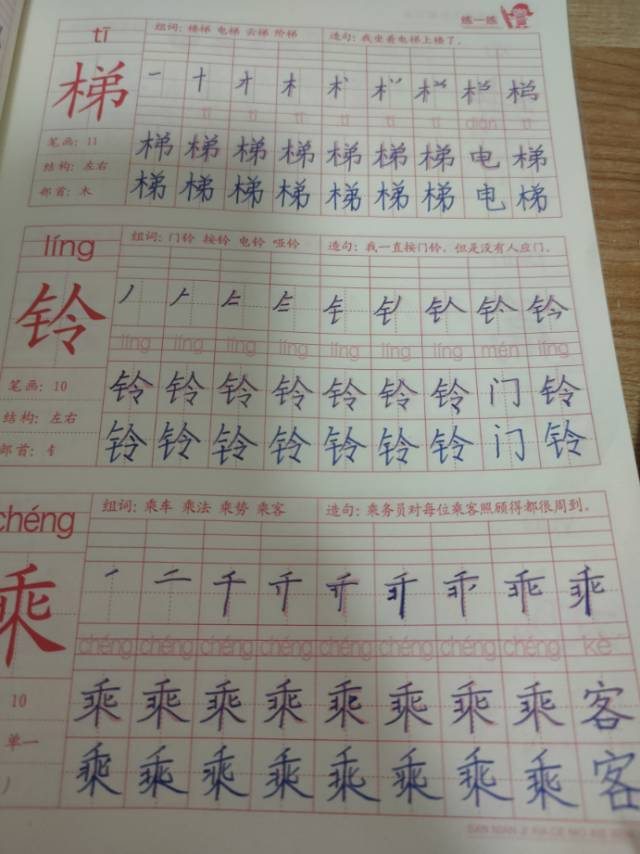 练一练
tī 组词：楼梯 电梯 云梯 阶梯 造句：我坐着电梯上楼了。
梯
tī tī tī tī tī tī diàn tī
笔画：11 梯 梯 梯 梯 梯 梯 梯 电 梯
结构：左右
部首：木 梯 梯 梯 梯 梯 梯 梯 电 梯
líng 组词：门铃 按铃 电铃 哑铃 造句：我一直按门铃，但是没有人应门。
铃
líng líng líng líng líng líng líng mén líng
笔画：10 铃 铃 铃 铃 铃 铃 铃 门 铃
结构：左右
部首：钅 铃 铃 铃 铃 铃 铃 铃 门 铃
chéng 组词：乘车 乘法 乘势 乘客 造句：乘务员对每位乘客照顾得都很周到。
乘
chéng chéng chéng chéng chéng chéng chéng chéng kè
10 乘 乘 乘 乘 乘 乘 乘 乘 客
单一
乘 乘 乘 乘 乘 乘 乘 乘 客